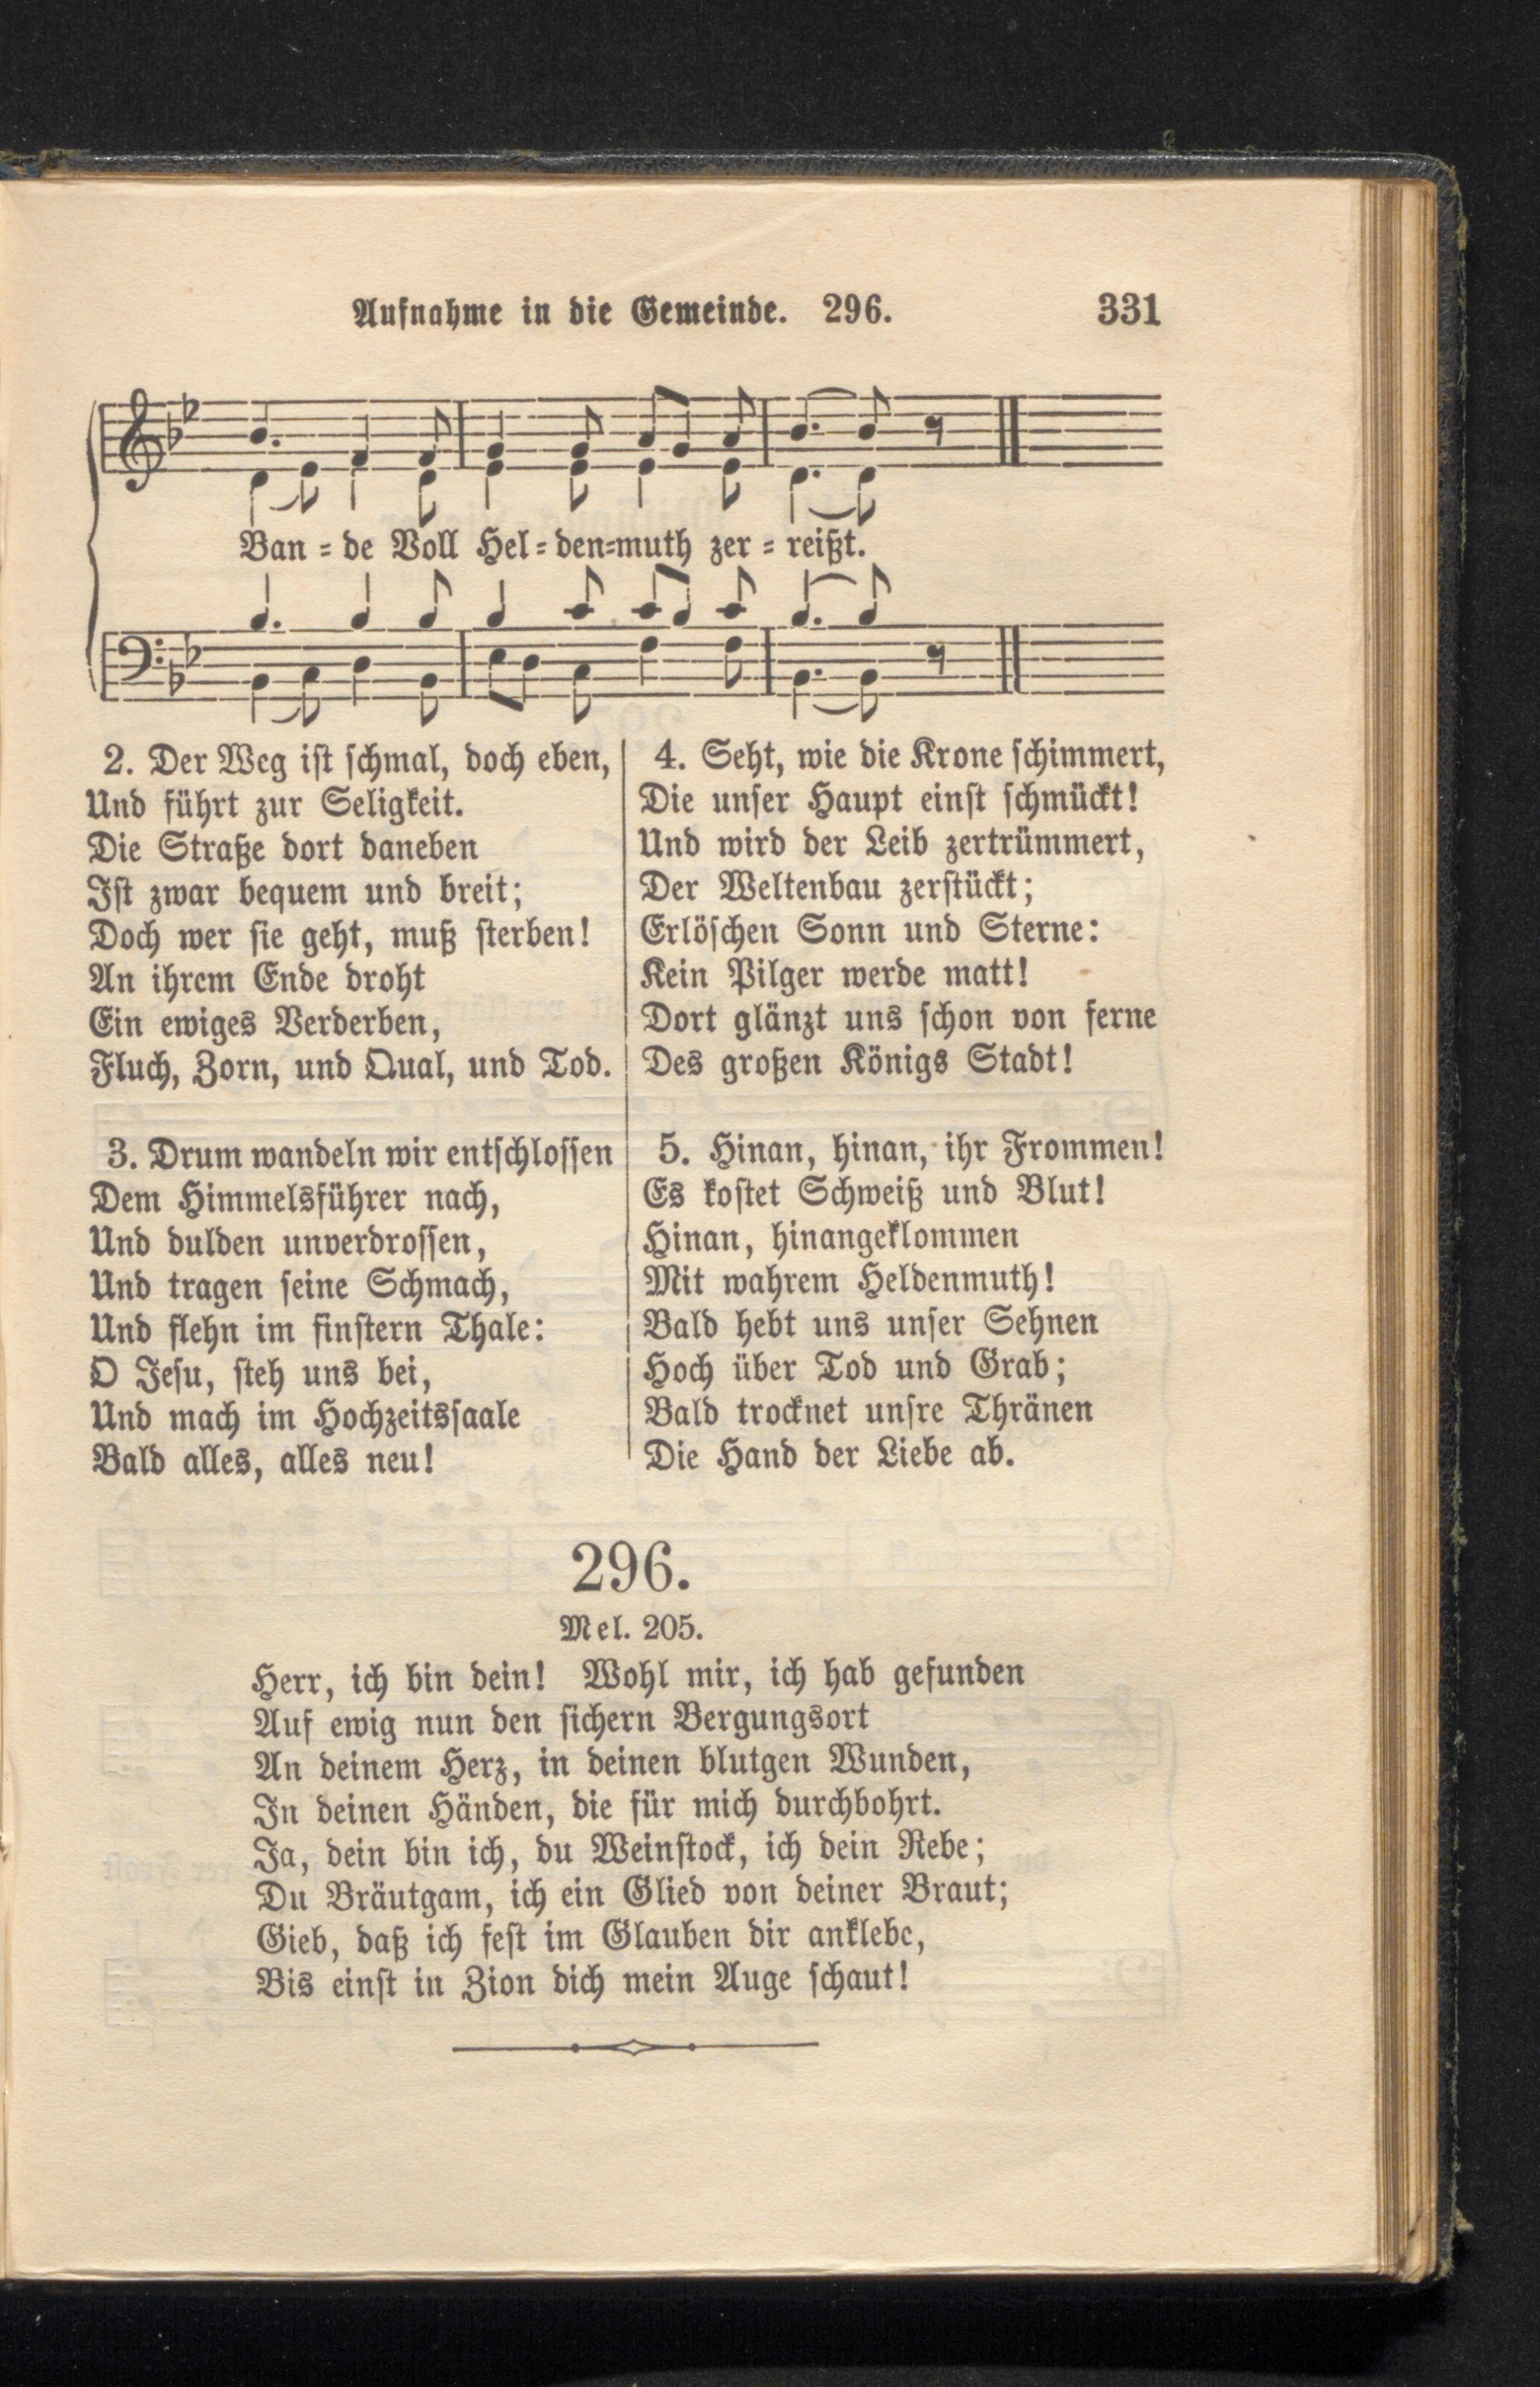 Aufnahme in die Gemeinde. 296. 331
Ban=de Voll Hel=den=muth zer=reißt.
2. Der Weg ist schmal, doch eben,
Und führt zur Seligkeit.
Die Straße dort daneben
Ist zwar bequem und breit;
Doch wer sie geht, muß sterben!
An ihrem Ende droht
Ein ewiges Verderben,
Fluch, Zorn, und Qual, und Tod.
3. Drum wandeln wir entschlossen
Dem Himmelsführer nach,
Und dulden unverdrossen,
Und tragen seine Schmach,
Und flehn im finstern Thale:
O Jesu, steh uns bei,
Und mach im Hochzeitssaale
Bald alles, alles neu!
4. Seht, wie die Krone schimmert,
Die unser Haupt einst schmückt!
Und wird der Leib zertrümmert,
Der Weltenbau zerstückt;
Erlöschen Sonn und Sterne:
Kein Pilger werde matt!
Dort glänzt uns schon von ferne
Des großen Königs Stadt!
5. Hinan, hinan, ihr Frommen!
Es kostet Schweiß und Blut!
Hinan, hinangeklommen
Mit wahrem Heldenmuth!
Bald hebt uns unser Sehnen
Hoch über Tod und Grab;
Bald trocknet unsre Thränen
Die Hand der Liebe ab.
296.
Mel. 205.
Herr, ich bin dein! Wohl mir, ich hab gefunden
Auf ewig nun den sichern Bergungsort
An deinem Herz, in deinen blutgen Wunden,
In deinen Händen, die für mich durchbohrt.
Ja, dein bin ich, du Weinstock, ich dein Rebe;
Du Bräutgam, ich ein Glied von deiner Braut;
Gieb, daß ich fest im Glauben dir anklebe,
Bis einst in Zion dich mein Auge schaut!